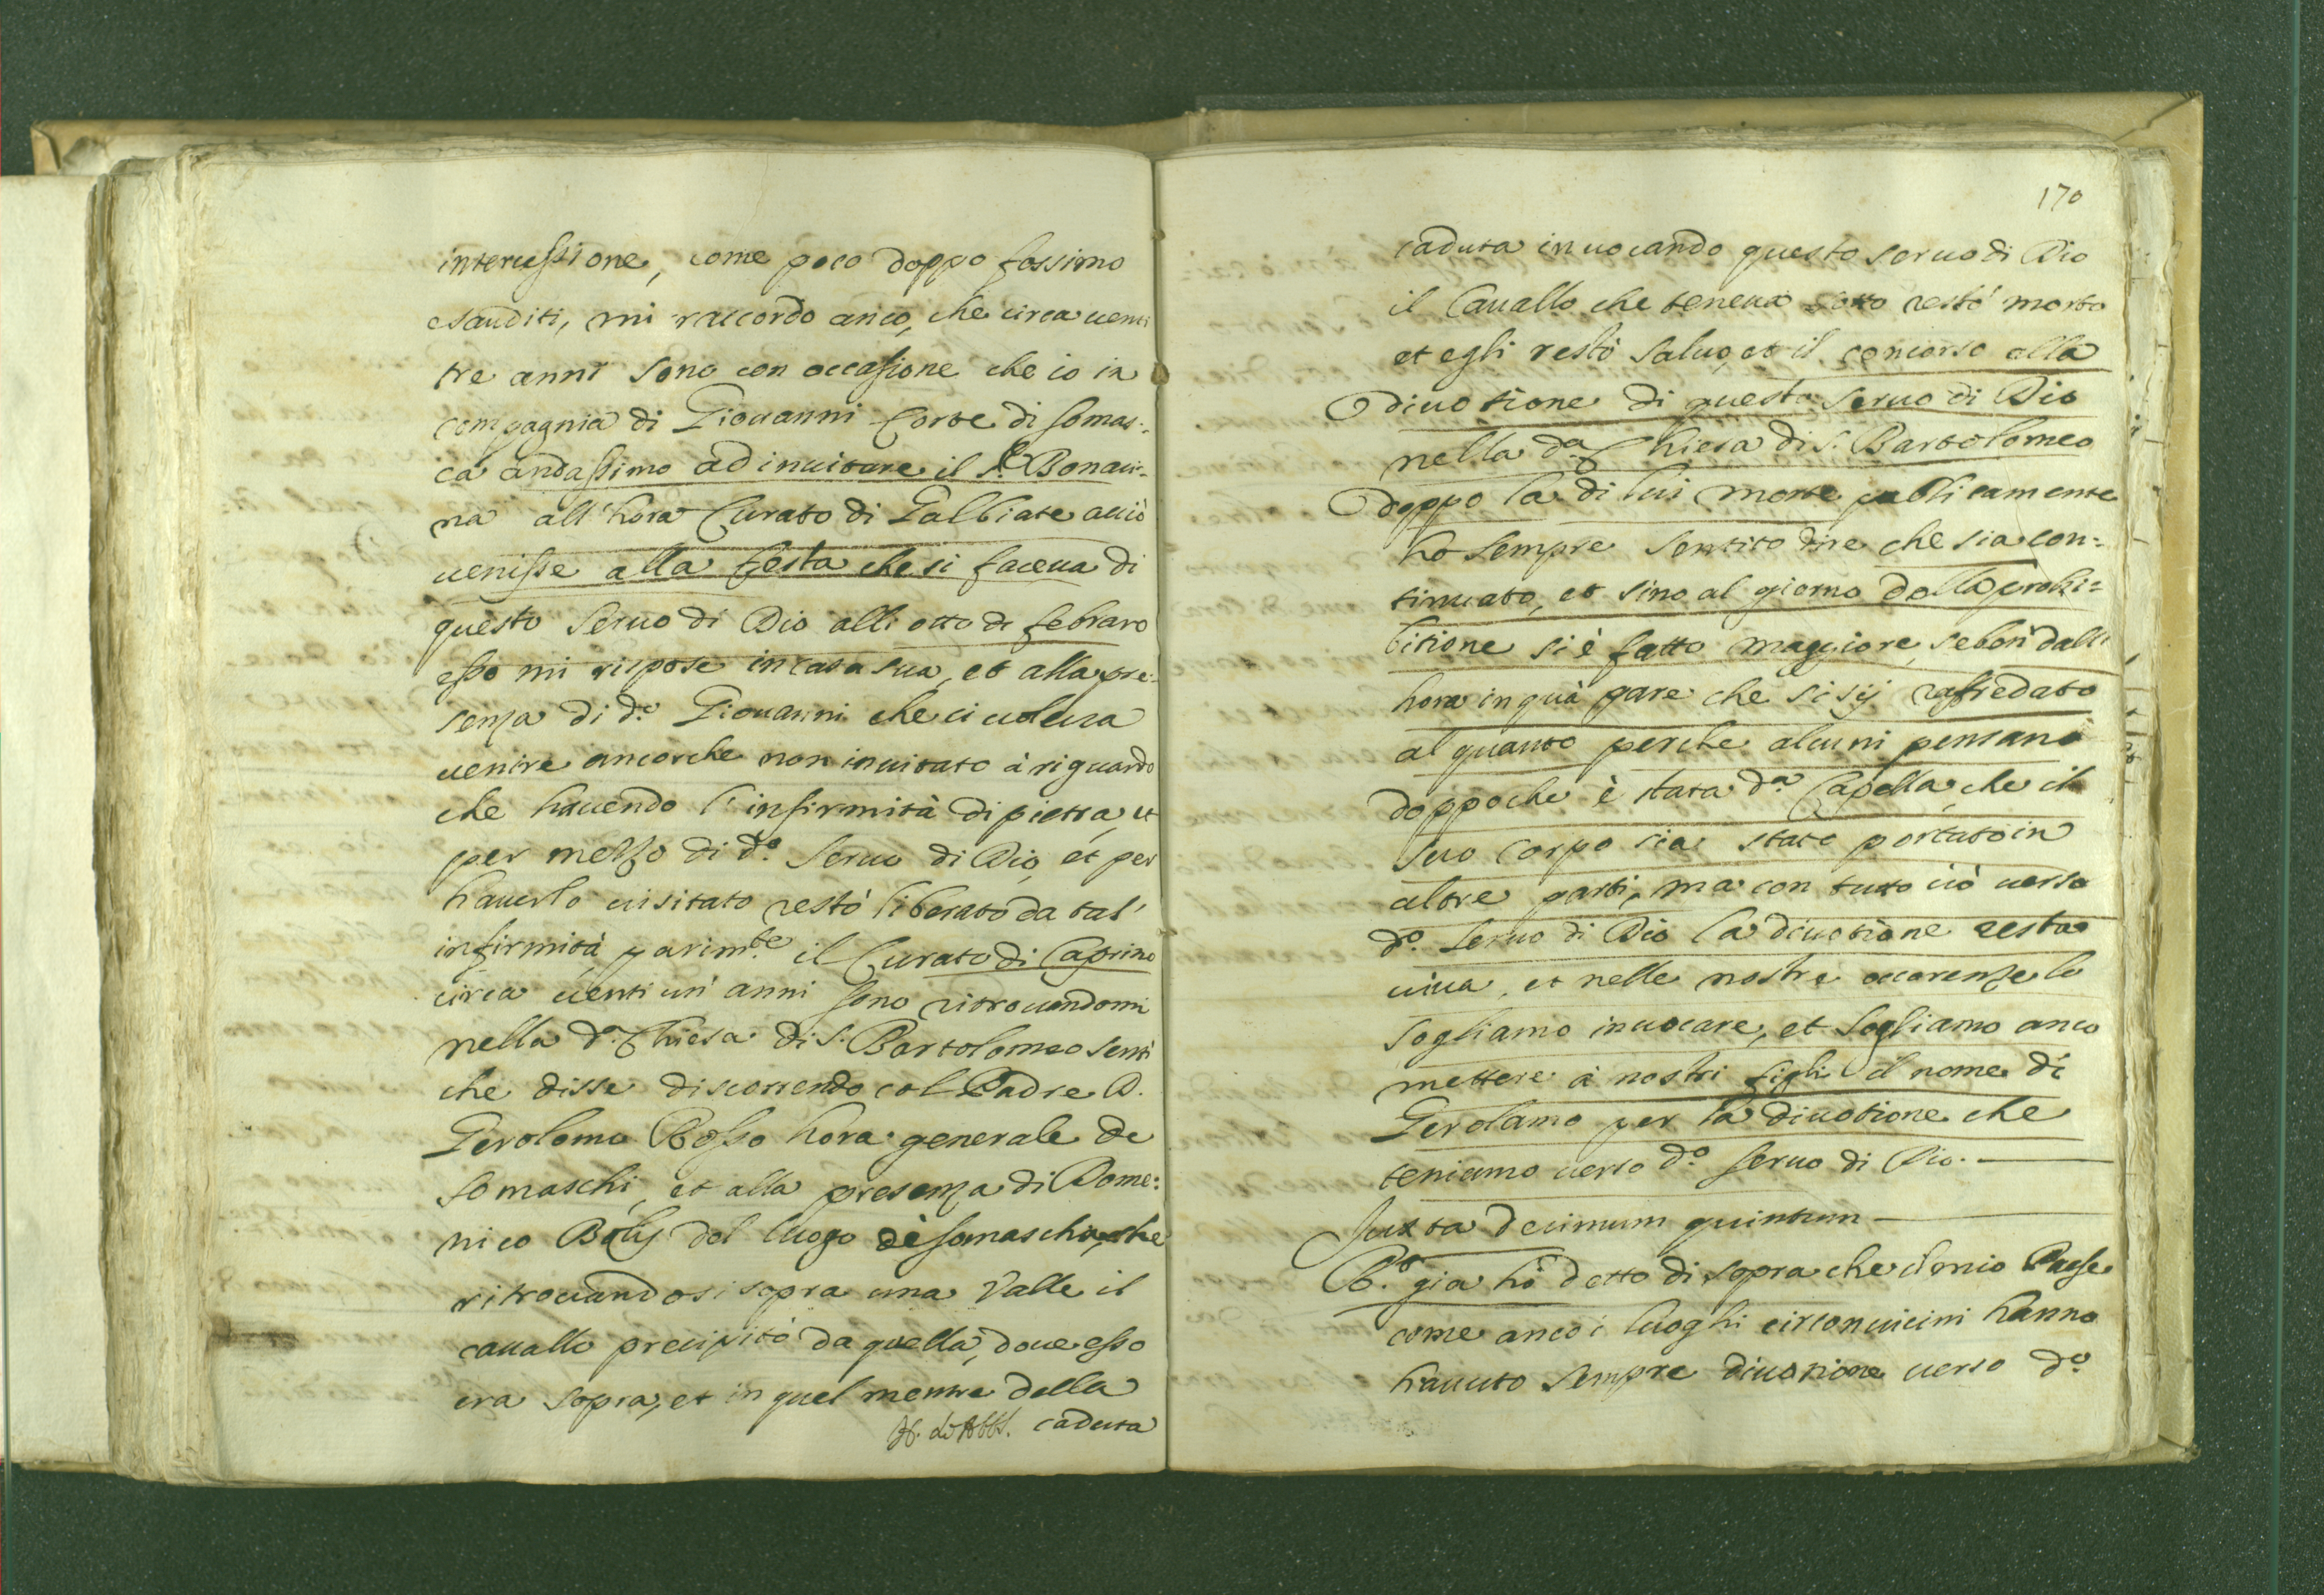 intercessione, come poco doppo fossimo
esauditi, mi raccordo anco, che circa venti
tre anni sono con occasione che io in
compagnia di Giouanni Corte di Somas-
ca andassimo ad inuitare il S.r Bonaci-
na all'hora Curato di Galbiate acciò
uenisse alla festa che si faceua di
questo Seruo di Dio alli otto di febraro
esso mi rispose in casa sua, et alla pre-
senza di d.o Giouanni che ci uoleua
uenire ancorche non inuitato à riguardo
che hauendo l'infirmità di pietra, et
per mezzo di d.o Seruo di Dio, et per
hauerlo uisitato restò liberato da tal'
infirmità, parim.te il Curato di Caprino
circa uenti un' anni sono ritrouandomi
nella d.a Chiesa di S. Bartolomeo senti
che disse discorrendo col Padre D.
Gerolomo Rosso hora generale de
Somaschi, et alla presenza di Dome:
nico Bolis del luogo di Somascha, che
ritrouandosi sopra una Valle il
cauallo precipitò da quella, doue esso
era sopra, et in quel mentre della
caduta
170
caduta inuocando questo seruo di Dio
il Cauallo che teneua sotto restò morto
et egli restò saluo, et il concorso alla
diuotione di questo Seruo di Dio
nella d.a Chiesa di S. Bartolomeo
doppo la di lui morte publicamente
ho sempre sentito dire che sia con:
tinuato, et sino al giorno della prohi=
bitione si è fatto maggiore, seben dall'
hora in quà pare che si sij rafredato
al quanto perche alcuni pensano
doppo che è stata d.a Capella, che il
suo Corpo sia stato portato in
altre parti, ma con tutto ciò uerso
d.o Seruo di Dio la diuotione resta
uiua, et nelle nostre occorenze lo
sogliamo inuocare, et sogliamo anco
mettere à nostri figli il nome di
Gerolamo per la diuotione che
teniamo uerso d.o Seruo di Dio.
Juxta decimum quintum
R.t gia hò detto di sopra che il mio Paese
come anco i luoghi circonuicini hanno
hauuto sempre diuotione uerso d.o